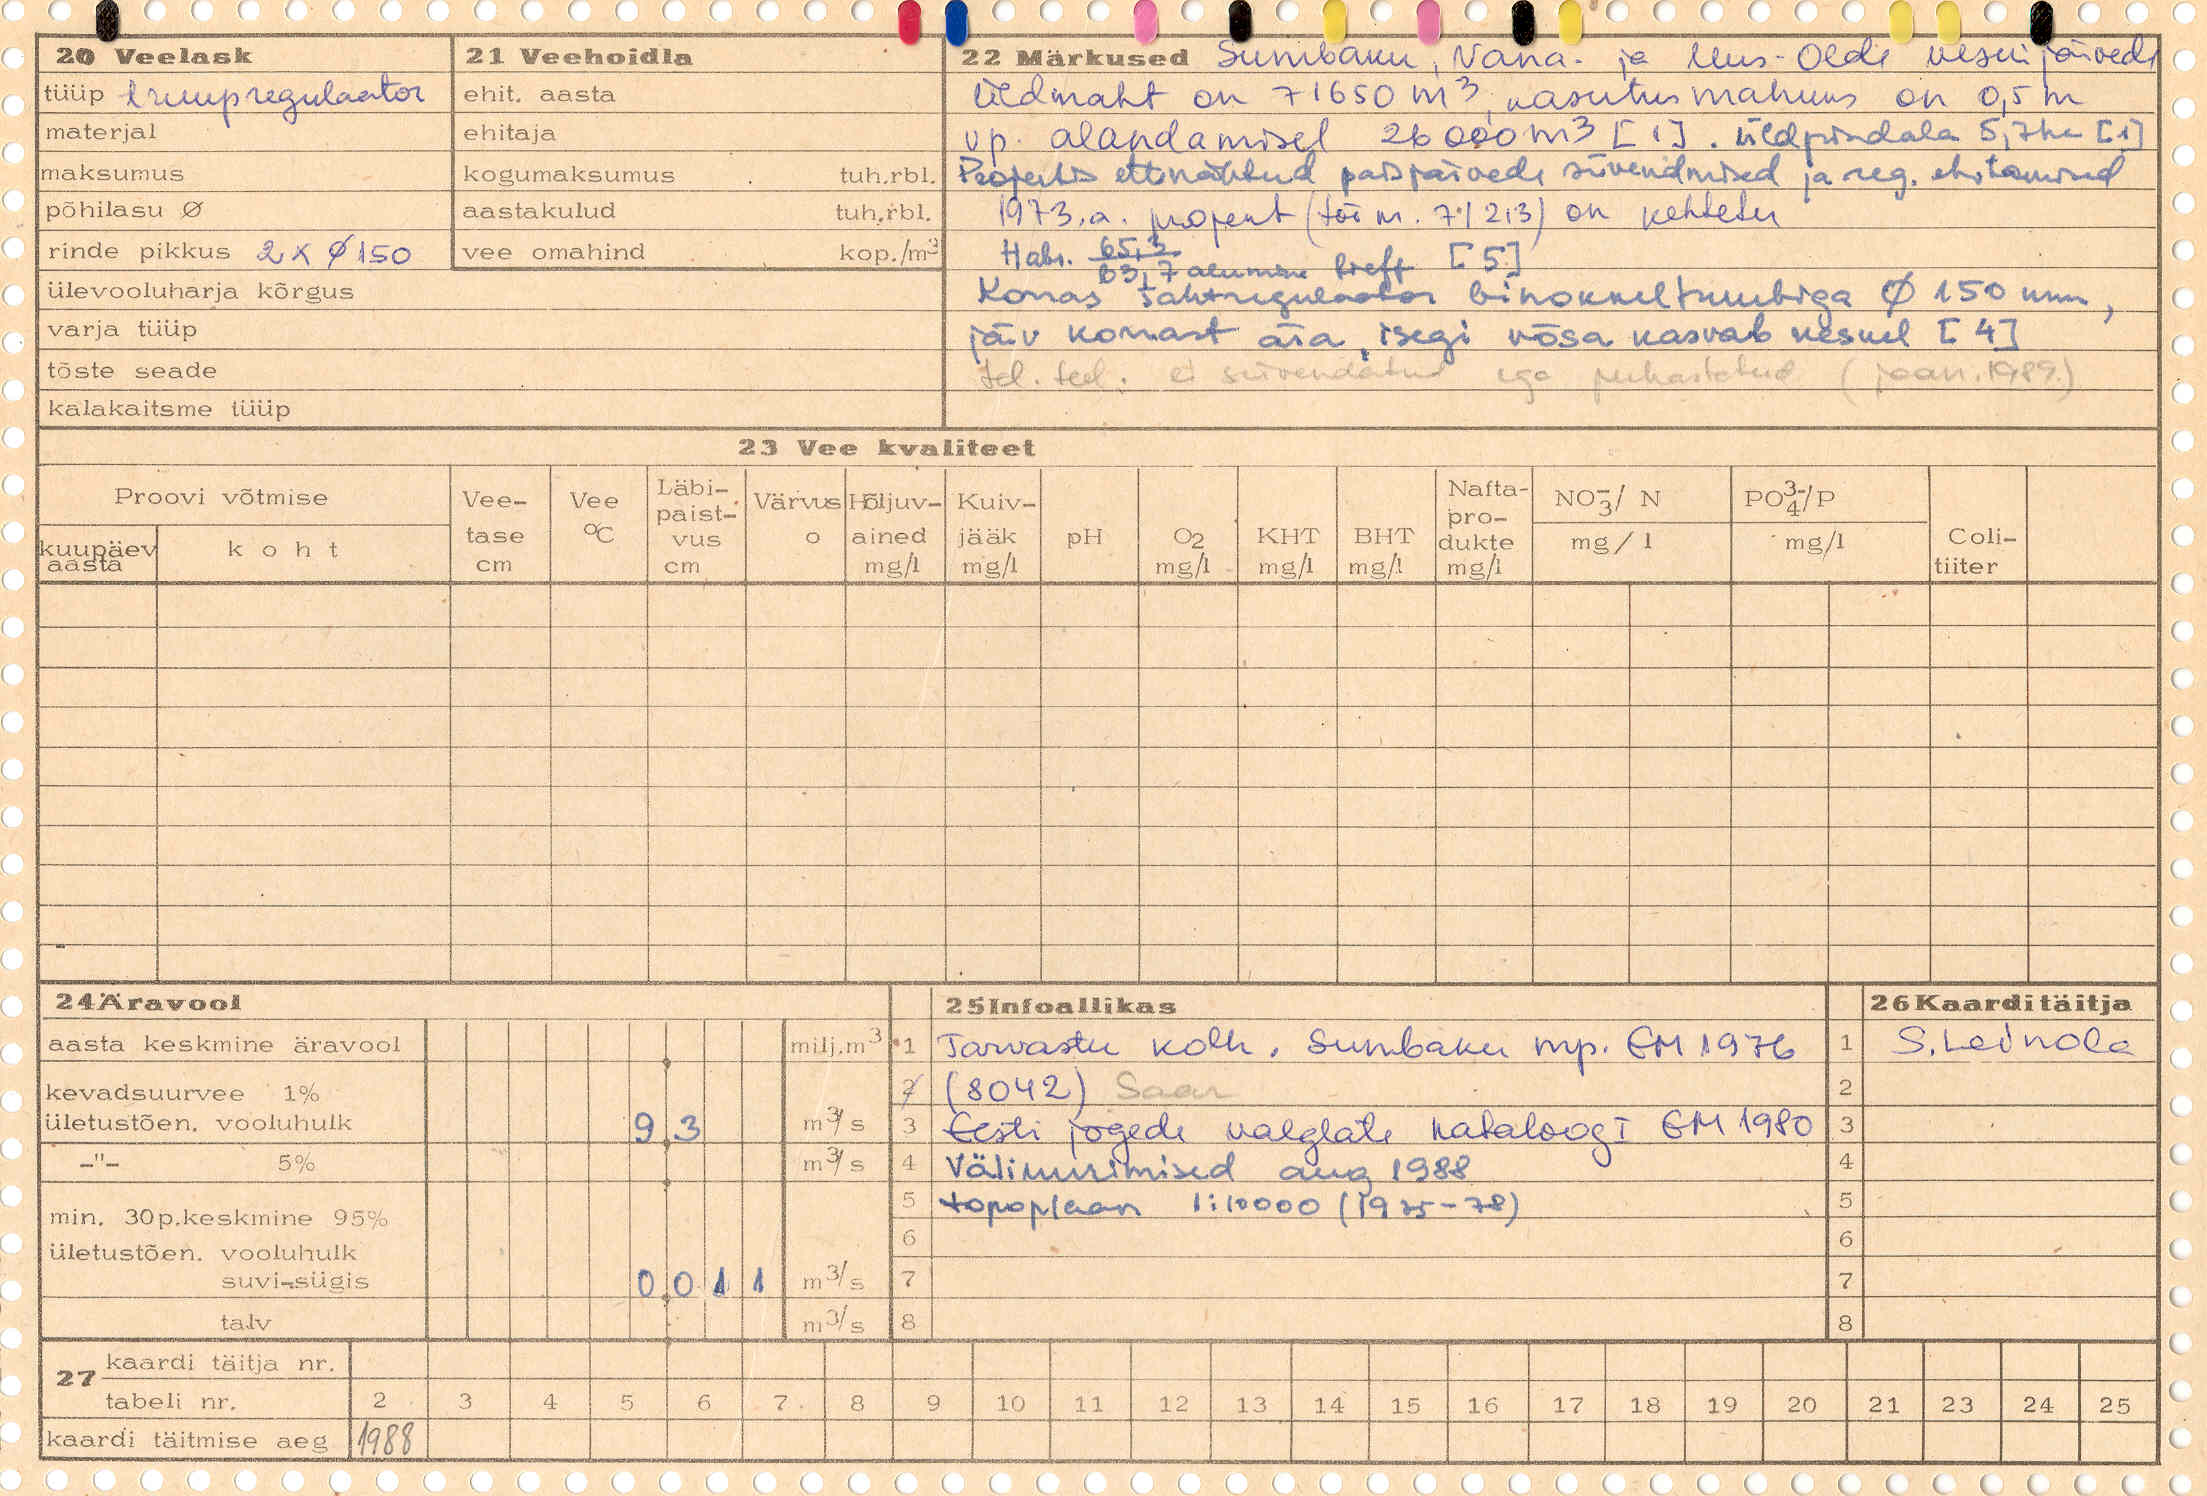 20 Veelask
tüüp truupregulaator
materjal
maksumus
põhilasu Ø
rinde pikkus 2 x Ø 150
ülevooluharja kõrgus
varja tüüp
tõste seade
kalakaitsme tüüp
21 Veehoidla
ehit. aasta
ehitaja
kogumaksumus tuh.rbl.
aastakulud tuh.rbl.
vee omahind kop./m³
22 Märkused Sumbaku, Vana- ja Uus-Olde veskijärvede
üldmaht on 71650 m³, kasutusmahuks on 0,5 m
vp. alandamisel 26000 m³ [1]. Üldpindala 5,7 ha [1]
Projektis ettenähtud paisjärvede süvendmised ja reg. ehitamised
1973.a. projekt (töö nr. 71213) on kehtetu
Habs. 65,3
63,7 alumine bjeff [5]
Korras šahtregulaator binokkeltruubiga Ø 150 mm,
järv korrast ära, isegi võsa kasvab keskel [4]
tel. teel. ei süvendatud ega puhastatud (jaan. 1989.)
23 Vee kvaliteet
Proovi võtmise
kuupäev aasta
koht
Vee-
tase
cm
Vee
°C
Läbi-
paist-
vus
cm
Värvus
o
Hõljuv-
ained
mg/l
Kuiv-
jääk
mg/l
pH
O2
mg/l
KHT
mg/l
BHT
mg/l
Nafta-
pro-
dukte
mg/l
NO₃⁻/ N
mg/l
PO₄³⁻/P
mg/l
Coli-
tiiter
24 Äravool
aasta keskmine äravool milj.m³
kevadsuurvee 1%
ületustõen. vooluhulk 9,3 m³/s
–"– 5% m³/s
min. 30p.keskmine 95%
ületustõen. vooluhulk
suvi-sügis 0,011 m³/s
talv m³/s
25 Infoallikas
1 Tarvastu kolh. Sumbaku mp. EM 1976
2 (8042) Saar
3 Eesti jõgede valglate kataloog I EM 1980
4 Väliuurimised aug 1988
5 topoplaan 1:10000 (1975-78)
6
7
8
26 Kaarditäitja
1 S. Leinola
2
3
4
5
6
7
8
27 kaardi täitja nr.
tabeli nr. 2 3 4 5 6 7 8 9 10 11 12 13 14 15 16 17 18 19 20 21 23 24 25
kaardi täitmise aeg 1988